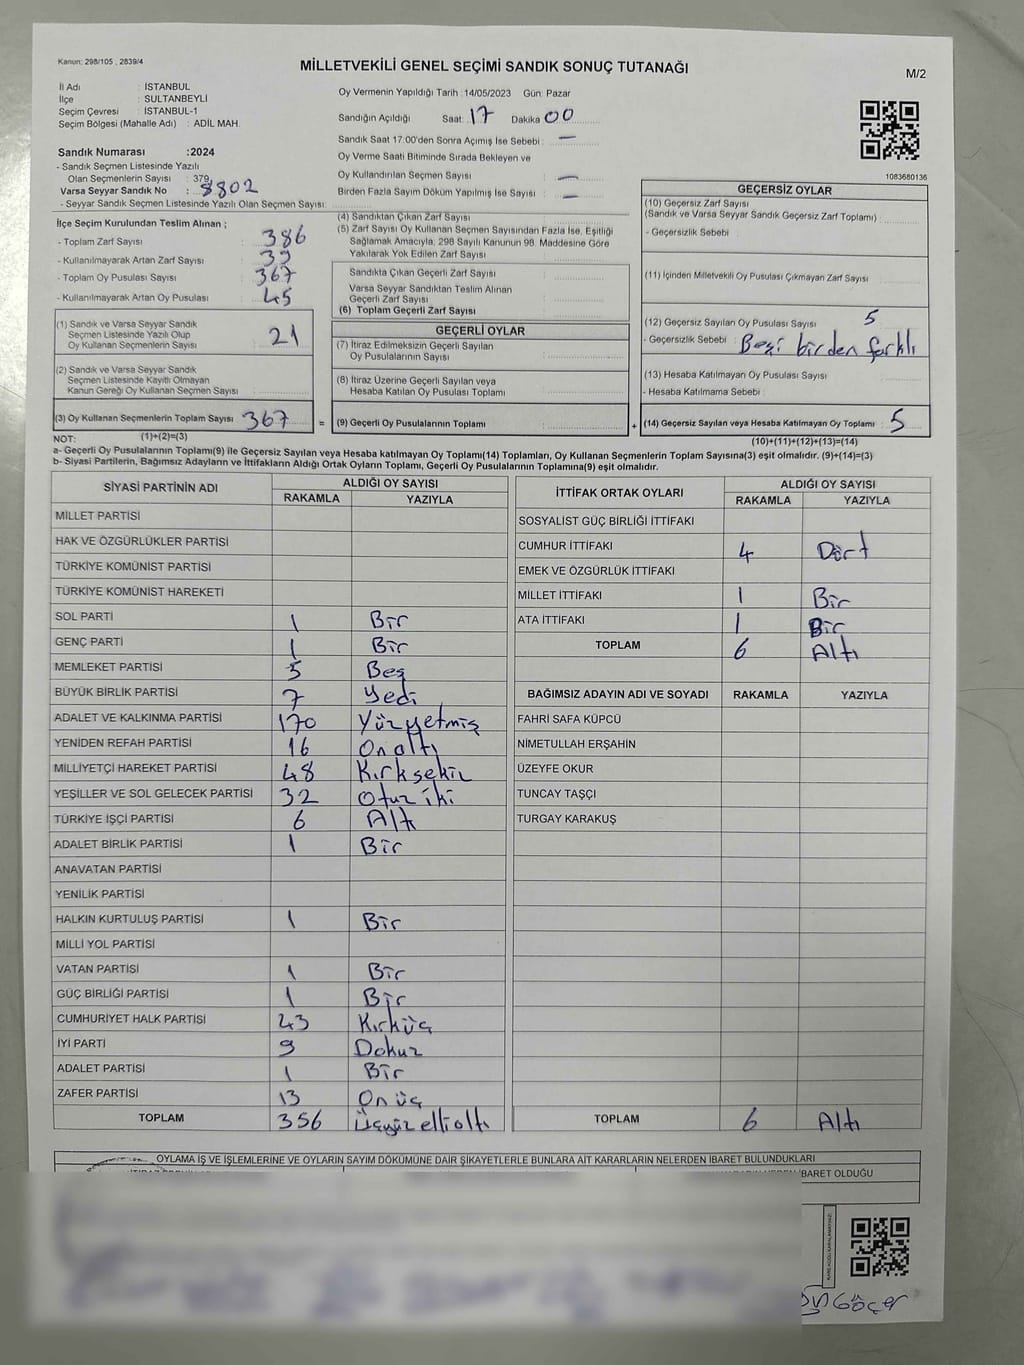 Kanun: 298/105 , 2839/4
MİLLETVEKİLİ GENEL SEÇİMİ SANDIK SONUÇ TUTANAĞI
M/2
İl Adı : İSTANBUL
İlçe : SULTANBEYLİ
Seçim Çevresi : İSTANBUL-1
Seçim Bölgesi (Mahalle Adı) : ADİL MAH.
Sandık Numarası :2024
- Sandık Seçmen Listesinde Yazılı
Olan Seçmenlerin Sayısı : 379
Varsa Seyyar Sandık No : 8802
- Seyyar Sandık Seçmen Listesinde Yazılı Olan Seçmen Sayısı:
Oy Vermenin Yapıldığı Tarih :14/05/2023 Gün: Pazar
Sandığın Açıldığı Saat: 17 Dakika 00
Sandık Saat 17:00'den Sonra Açımış İse Sebebi : —
Oy Verme Saati Bitiminde Sırada Bekleyen ve
Oy Kullandırılan Seçmen Sayısı : —
Birden Fazla Sayım Döküm Yapılmış İse Sayısı : —
1083680136
İlçe Seçim Kurulundan Teslim Alınan ;
- Toplam Zarf Sayısı : 386
- Kullanılmayarak Artan Zarf Sayısı : 39
- Toplam Oy Pusulası Sayısı : 367
- Kullanılmayarak Artan Oy Pusulası : 45
(1) Sandık ve Varsa Seyyar Sandık
Seçmen Listesinde Yazılı Olup
Oy Kullanan Seçmenlerin Sayısı : 21
(2) Sandık ve Varsa Seyyar Sandık
Seçmen Listesinde Kayıtlı Olmayan
Kanun Gereği Oy Kullanan Seçmen Sayısı :
(3) Oy Kullanan Seçmenlerin Toplam Sayısı : 367
(1)+(2)=(3)
(4) Sandıktan Çıkan Zarf Sayısı :
(5) Zarf Sayısı Oy Kullanan Seçmen Sayısından Fazla İse, Eşitliği
Sağlamak Amacıyla, 298 Sayılı Kanunun 98. Maddesine Göre
Yakılarak Yok Edilen Zarf Sayısı :
Sandıkta Çıkan Geçerli Zarf Sayısı :
Varsa Seyyar Sandıktan Teslim Alınan
Geçerli Zarf Sayısı :
(6) Toplam Geçerli Zarf Sayısı :
GEÇERLİ OYLAR
(7) İtiraz Edilmeksizin Geçerli Sayılan
Oy Pusulalarının Sayısı :
(8) İtiraz Üzerine Geçerli Sayılan veya
Hesaba Katılan Oy Pusulası Toplamı :
= (9) Geçerli Oy Pusulalarının Toplamı :
GEÇERSİZ OYLAR
(10) Geçersiz Zarf Sayısı
(Sandık ve Varsa Seyyar Sandık Geçersiz Zarf Toplamı) :
- Geçersizlik Sebebi :
(11) İçinden Milletvekili Oy Pusulası Çıkmayan Zarf Sayısı :
(12) Geçersiz Sayılan Oy Pusulası Sayısı : 5
- Geçersizlik Sebebi : Beşi birden farklı
(13) Hesaba Katılmayan Oy Pusulası Sayısı :
- Hesaba Katılmama Sebebi :
+ (14) Geçersiz Sayılan veya Hesaba Katılmayan Oy Toplamı : 5
(10)+(11)+(12)+(13)=(14)
NOT:
a- Geçerli Oy Pusulalarının Toplamı(9) ile Geçersiz Sayılan veya Hesaba katılmayan Oy Toplamı(14) Toplamları, Oy Kullanan Seçmenlerin Toplam Sayısına(3) eşit olmalıdır. (9)+(14)=(3)
b- Siyasi Partilerin, Bağımsız Adayların ve İttifakların Aldığı Ortak Oyların Toplamı, Geçerli Oy Pusulalarının Toplamına(9) eşit olmalıdır.
SİYASİ PARTİNİN ADI ALDIĞI OY SAYISI
RAKAMLA YAZIYLA
MİLLET PARTİSİ
HAK VE ÖZGÜRLÜKLER PARTİSİ
TÜRKİYE KOMÜNİST PARTİSİ
TÜRKİYE KOMÜNİST HAREKETİ
SOL PARTİ 1 Bir
GENÇ PARTİ 1 Bir
MEMLEKET PARTİSİ 5 Beş
BÜYÜK BİRLİK PARTİSİ 7 Yedi
ADALET VE KALKINMA PARTİSİ 170 Yüzyetmiş
YENİDEN REFAH PARTİSİ 16 Onaltı
MİLLİYETÇİ HAREKET PARTİSİ 48 Kırksekiz
YEŞİLLER VE SOL GELECEK PARTİSİ 32 Otuz iki
TÜRKİYE İŞÇİ PARTİSİ 6 Altı
ADALET BİRLİK PARTİSİ 1 Bir
ANAVATAN PARTİSİ
YENİLİK PARTİSİ
HALKIN KURTULUŞ PARTİSİ 1 Bir
MİLLİ YOL PARTİSİ
VATAN PARTİSİ 1 Bir
GÜÇ BİRLİĞİ PARTİSİ 1 Bir
CUMHURİYET HALK PARTİSİ 43 Kırküç
İYİ PARTİ 9 Dokuz
ADALET PARTİSİ 1 Bir
ZAFER PARTİSİ 13 Onüç
TOPLAM 356 Üçyüzellialtı
İTTİFAK ORTAK OYLARI ALDIĞI OY SAYISI
RAKAMLA YAZIYLA
SOSYALİST GÜÇ BİRLİĞİ İTTİFAKI
CUMHUR İTTİFAKI 4 Dört
EMEK VE ÖZGÜRLÜK İTTİFAKI
MİLLET İTTİFAKI 1 Bir
ATA İTTİFAKI 1 Bir
TOPLAM 6 Altı
BAĞIMSIZ ADAYIN ADI VE SOYADI RAKAMLA YAZIYLA
FAHRİ SAFA KÜPCÜ
NİMETULLAH ERŞAHİN
ÜZEYFE OKUR
TUNCAY TAŞÇI
TURGAY KARAKUŞ
TOPLAM 6 Altı
OYLAMA İŞ VE İŞLEMLERİNE VE OYLARIN SAYIM DÖKÜMÜNE DAİR ŞİKAYETLERLE BUNLARA AİT KARARLARIN NELERDEN İBARET BULUNDUKLARI
İBARET OLDUĞU
Göçer